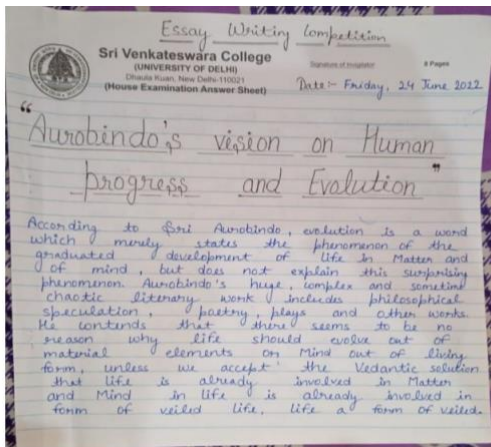 Essay Writing Competition
Sri Venkateswara College
(UNIVERSITY OF DELHI)
Dhaula Kuan, New Delhi-110021
(House Examination Answer Sheet)
Signature of Invigilator
8 Pages
Date:- Friday, 24 June 2022
"Aurobindo's vision on Human
progress and Evolution"
According to Sri Aurobindo, evolution is a word
which merely states the phenomenon of the
graduated development of life in Matter and
of mind, but does not explain this surprising
phenomenon. Aurobindo's huge, complex and sometime
chaotic literary work includes philosophical
speculation, poetry, plays and other works.
He contends that there seems to be no
reason why life should evolve out of
material elements or Mind out of living
form, unless we accept the Vedantic solution
that life is already involved in Matter
and Mind in life is already involved in
form of veiled life, life a form of veiled.